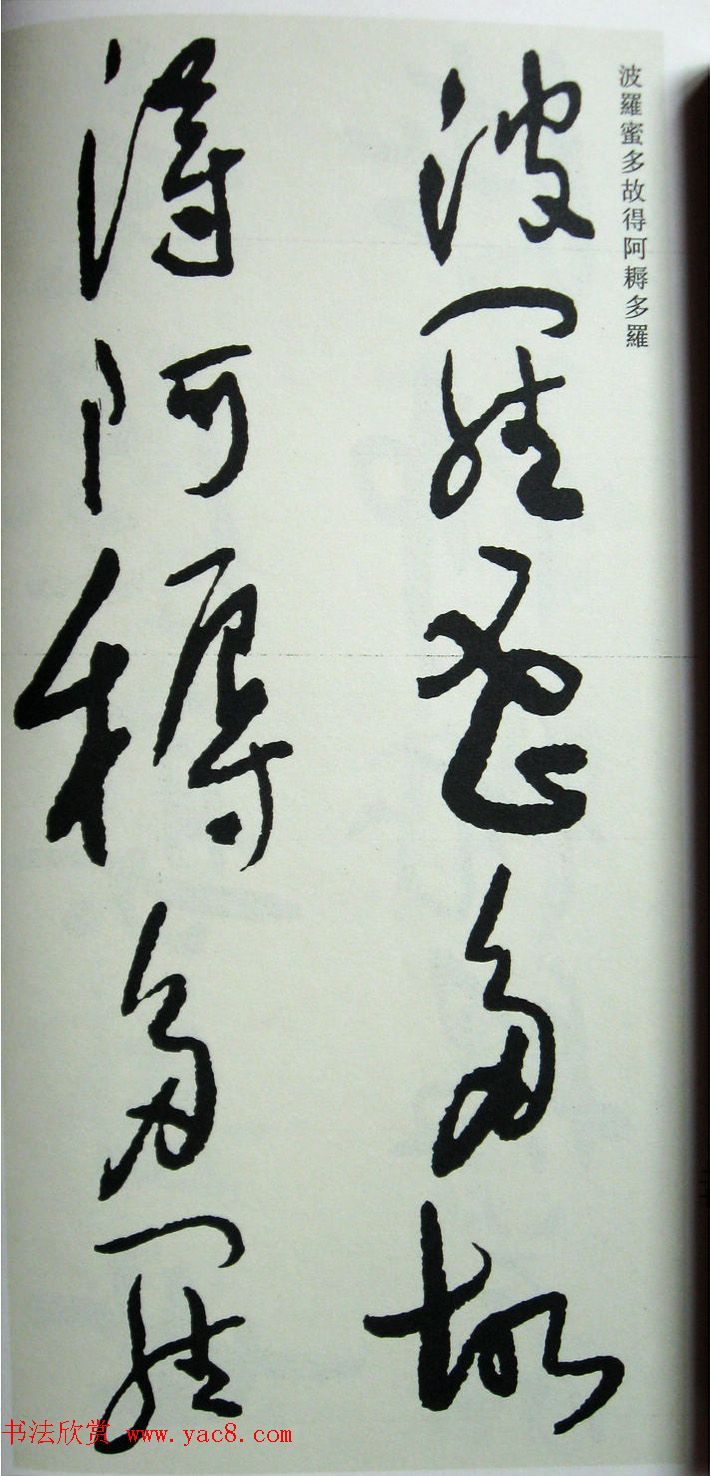 波羅蜜多故得阿耨多羅
波羅蜜多故
得阿耨多羅
书法欣赏 www.yac8.com